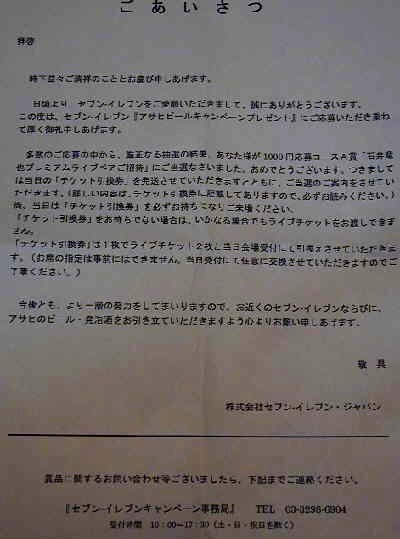 ごあいさつ
拝啓
時下益々ご清祥のこととお慶び申しあげます。
日頃より、セブン-イレブンをご愛顧いただきまして、誠にありがとうございます。
この度は、セブン-イレブン『アサヒビールキャンペーンプレゼント』にご応募いただき重ね
て厚く御礼申しあげます。
多数のご応募の中から、厳正なる抽選の結果、あなた様が1000円応募コースA賞「石井竜
也プレミアムライブペアご招待」にご当選なさいました。おめでとうございます。つきまして
は当日の「チケット引換券」を発送させていただきますとともに、ご当選のご案内をさせてい
ただきます。(詳しい内容は、チケット引換券に記載してありますので、必ずお読みください。)
尚、当日は「チケット引換券」を必ずお持ちになりご来場ください。
「チケット引換券」をお持ちでない場合は、いかなる場合でもライブチケットをお渡しできま
せん。
「チケット引換券」は1枚でライブチケット2枚と当日会場受付にて引換えさせていただきま
す。(お席の指定は事前にはできません。当日受付にて任意に交換させていただきますのでご
了承ください。)
今後とも、より一層の努力をしてまいりますので、お近くのセブン-イレブンならびに、
アサヒのビール・発泡酒をお引き立ていただきますよう心よりお願い申しあげます。
敬具
株式会社セブン-イレブン・ジャパン
賞品に関するお問い合わせ等ございましたら、下記までご連絡ください。
『セブン-イレブンキャンペーン事務局』 TEL 03-3298-0904
受付時間 10:00~17:30(土・日・祝日を除く)